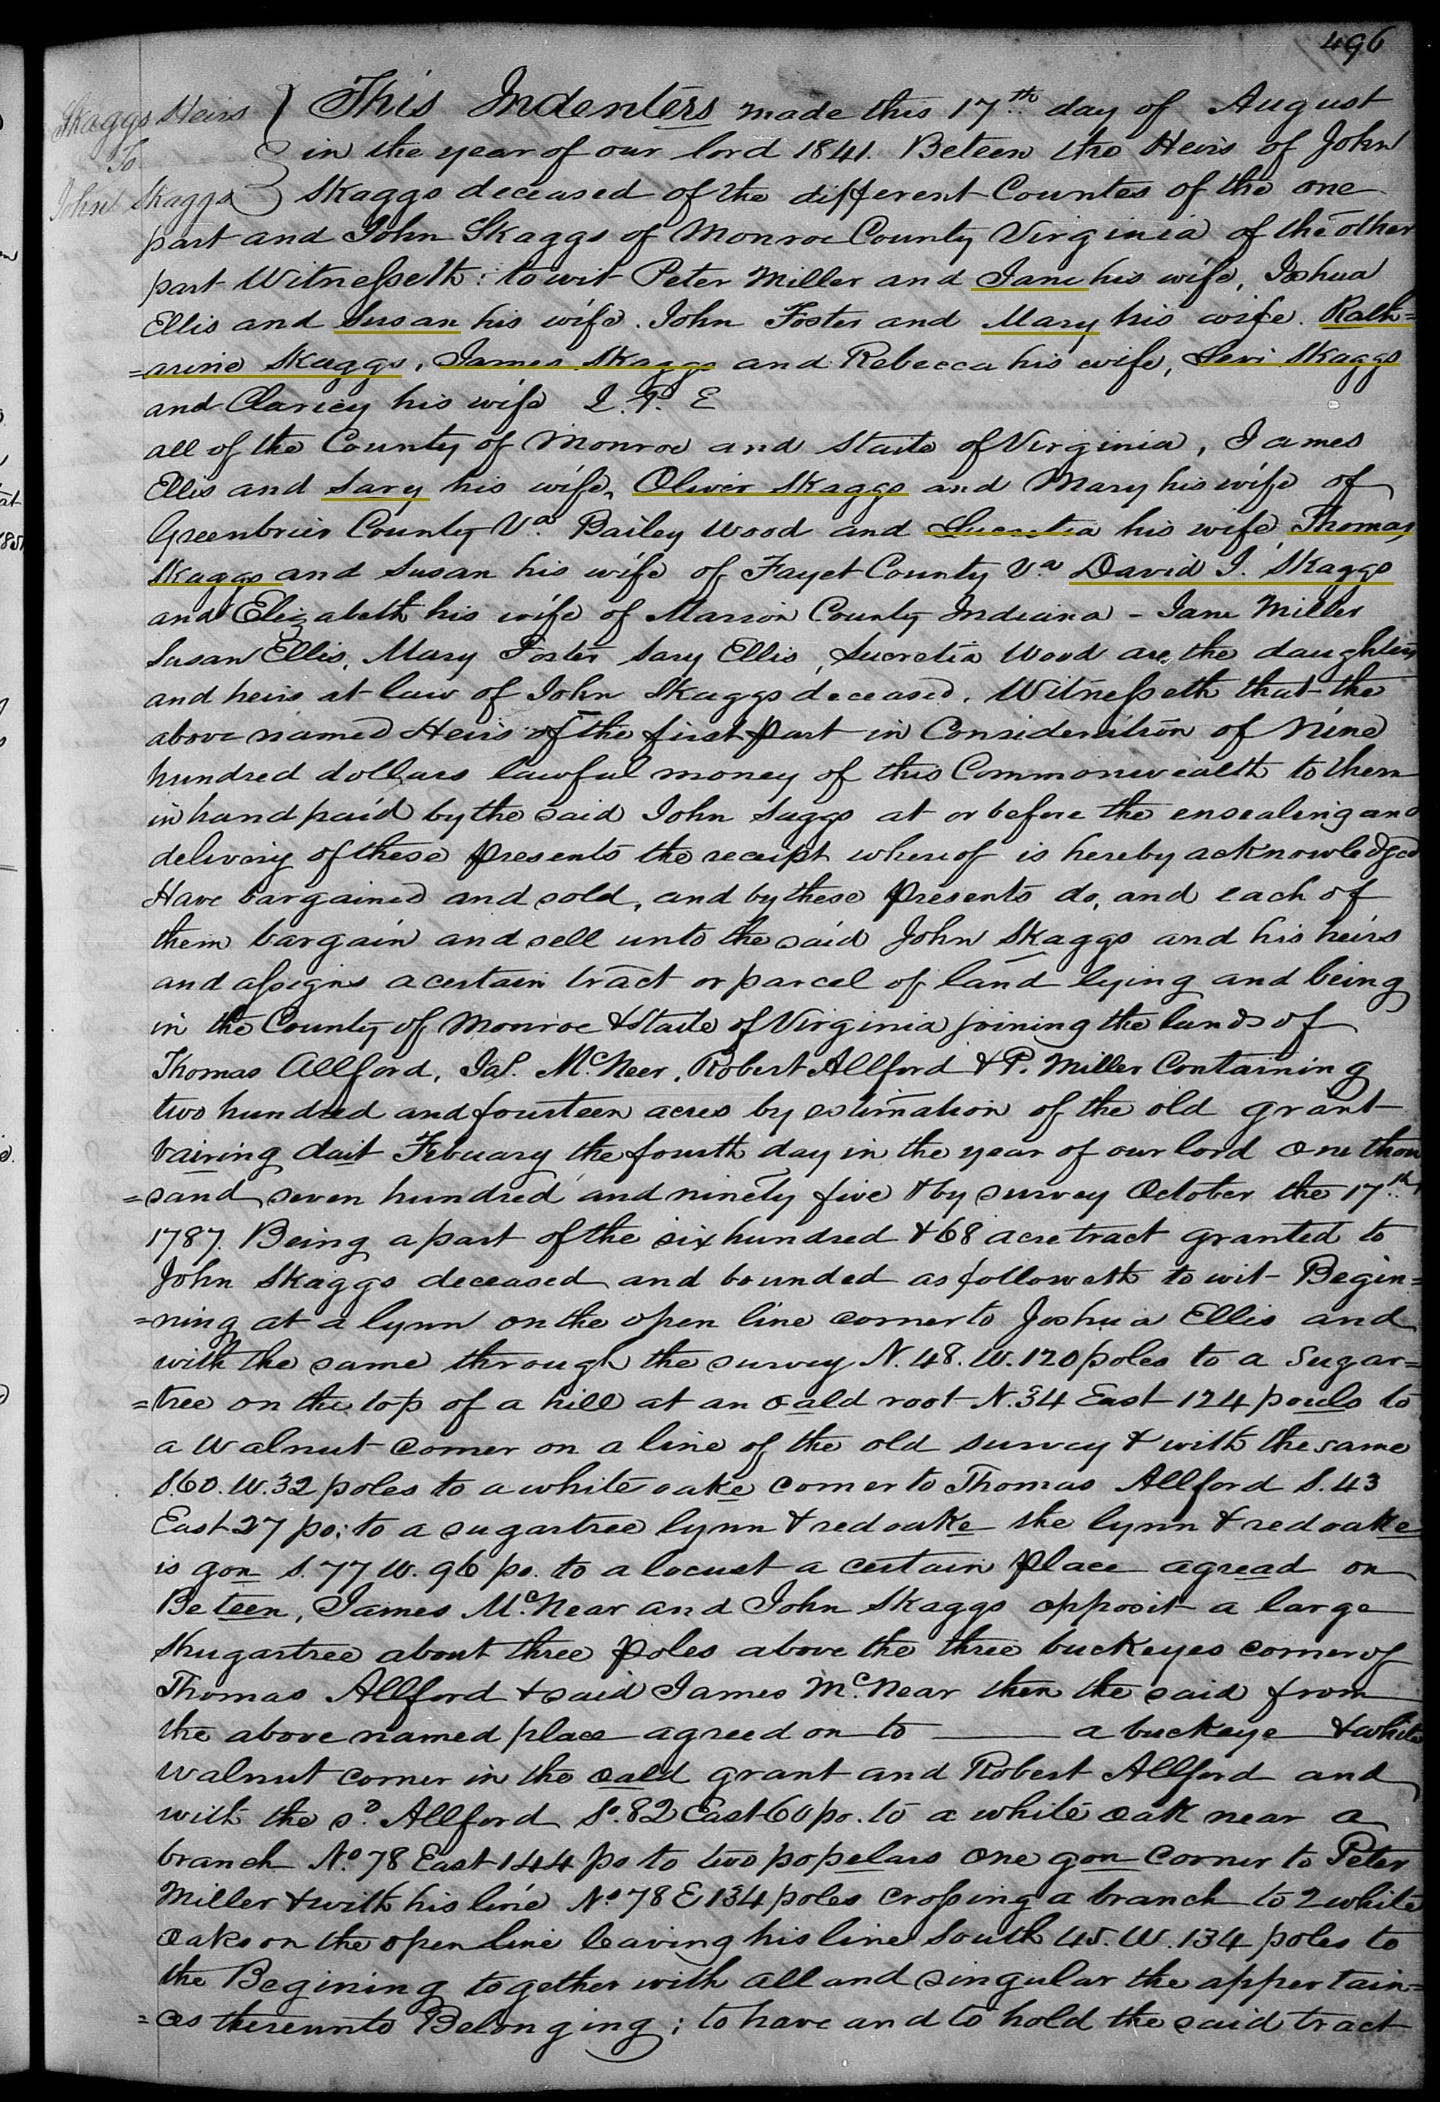 496
Skaggs Heirs
To
John Skaggs
This Indenters made this 17th day of August
in the year of our lord 1841. Beteen the Heirs of John
Skaggs deceased of the different Countes of the one
part and John Skaggs of Monroe County Virginia of the other
part Witnesseth: to wit Peter Miller and Jane his wife, Joshua
Ellis and Susan his wife. John Foster and Mary his wife. Kath=
=arine Skaggs, James Skaggs and Rebecca his wife, Levi Skaggs
and Claricy his wife
all of the County of Monroe and State of Virginia, James
Ellis and Sary his wife, Oliver Skaggs and Mary his wife of
Greenbrier County Va. Bailey Wood and Lucretia his wife, Thomas
Skaggs and Susan his wife of Fayet County Va David J. Skaggs
and Elizabeth his wife of Marion County Indiana - Jane Miller
Susan Ellis, Mary Foster Sary Ellis, Lucretia Wood are the daughters
and heirs at law of John Skaggs deceased. Witnesseth that the
above named Heirs of the first part in Consideration of Nine
hundred dollars lawful money of this Commonwealth to them
in hand paid by the said John Saggs at or before the ensealing and
delivery of these presents the receipt whereof is hereby acknowledged
Have bargained and sold, and by these presents do, and each of
them bargain and sell unto the said John Skaggs and his heirs
and assigns a certain tract or parcel of land lying and being
in the County of Monroe & State of Virginia joining the lands of
Thomas Allford, Jas. McNeer, Robert Allford & P. Miller Containing
two hundred and fourteen acres by estimation of the old grant
bairing dait Febuary the fourth day in the year of our lord One thou
=sand seven hundred and ninety five & by survey October the 17th
1787. Being a part of the six hundred & 68 acre tract granted to
John Skaggs deceased and bounded as followeth to wit Begin=
=ning at a lynn on the open line corner to Joshua Ellis and
with the same through the survey N. 48. W. 120 poles to a Sugar=
=tree on the top of a hill at an oald root N. 34 East 124 pouls to
a walnut corner on a line of the old survey & with the same
S. 60. W. 32 poles to a white oake corner to Thomas Allford S. 43
East 27 po: to a sugartree lynn & red oake the lynn & red oake
is gon S. 77 W. 96 po. to a locust a certain place agread on
Beteen, James McNear and John Skaggs opposit a large
Shugartree about three poles above the three buckeyes corner of
Thomas Allford & said James McNear then the said from
the above named place agreed on to ——— a buckeye & white
walnut corner in the oald grant and Robert Allford and
with the sd Allford So. 82 East 60 po. to a white oak near a
branch No 78 East 144 po to two popelars One gon corner to Peter
Miller & with his line No 78 E 134 poles crossing a branch to 2 white
oaks on the open line leaving his line South 45. W. 134 poles to
the Begining together with all and singular the appertain=
=ces thereunto Belonging; to have and to hold the said tract